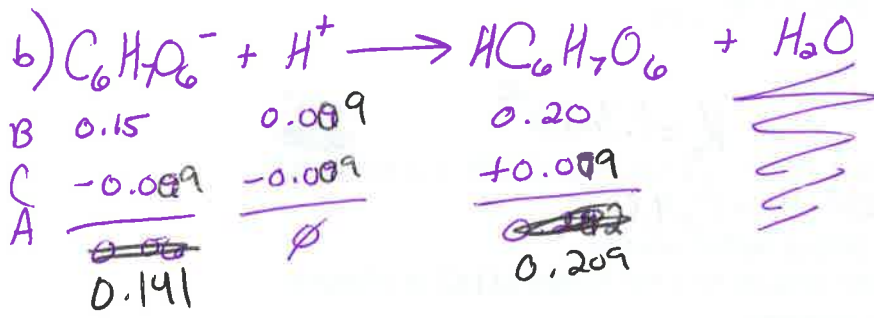 b) C₆H₇O₆⁻ + H⁺ → HC₆H₇O₆ + H₂O
B 0.15 0.009 0.20
C -0.009 -0.009 +0.009
A 0.141 ∅ 0.209